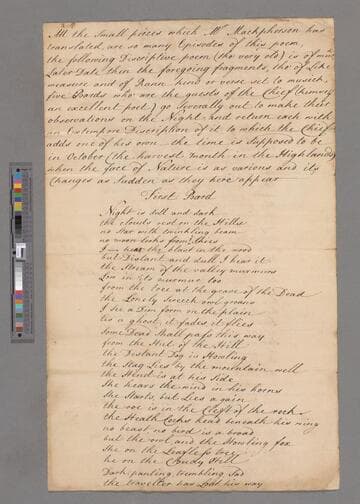 All the Small pieces which Mr Mackpherson has
translated are so many Episodes of this poem,
the following Descriptive poem (tho very old) is of much
Later Date than the foregoing fragments, tho of Like
measure and of Runn kind or verse set to musick
five Bards who are the guests of the Chief (himself
an excellent poet) go Severally out to make their
observations on the Night and return each with
an Extempore Discription of it to which the Chief
adds one of his own the time is Supposed to be
in October (the harvest month in the Highlands)
when the face of Nature is as various and its
Changes as Sudden as they here appear
First Bard
Night is dull and dark
the clouds rest on the Hills
no star with twinkling beam
no moon looks from the skies
I hear the blast in the wood
but Distant and dull I hear it
the Stream of the valley murmurs
Low in its murmur too
from the tree at the grave of the Dead
the Lonely Screech owl groans
I see a Dim form on the plain
tis a ghost it fades it flies
Some Dead Shall pass this way
from the Hut of the Hill
the Distant Dog is Howling
the Stag Lies by the mountain well
the Hind is at his Side
She hears the wind in his horns
She Starts, but Lies again
the roe is in the Cleft of the rock
the Heath Cocks head beneath his wing
no beast no bird is abroad
but the owl and the Howling fox
She on the Leafless tree
he on the Cloudy Hill
Dark panting, trembling Sad
the traveller has Lost his way